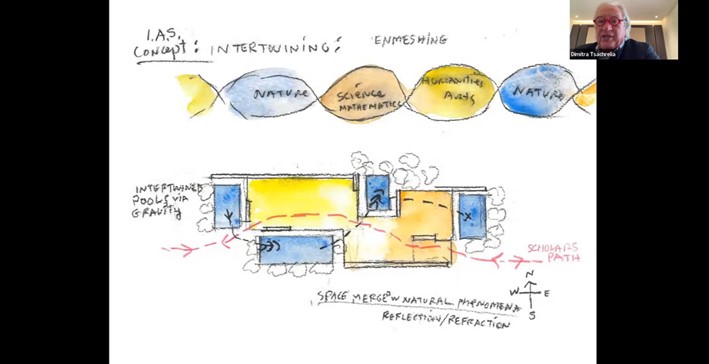 I.A.S.
CONCEPT: INTERTWINING: ENMESHING
NATURE
SCIENCE
MATHEMATICS
HUMANITIES
ARTS
NATURE
INTERTWINED
POOLS VIA
GRAVITY
SCHOLARS
PATH
N
W E
S
SPACE MERGE W NATURAL PHENOMENA
REFLECTION/REFRACTION
Dimitra Tsachrelia